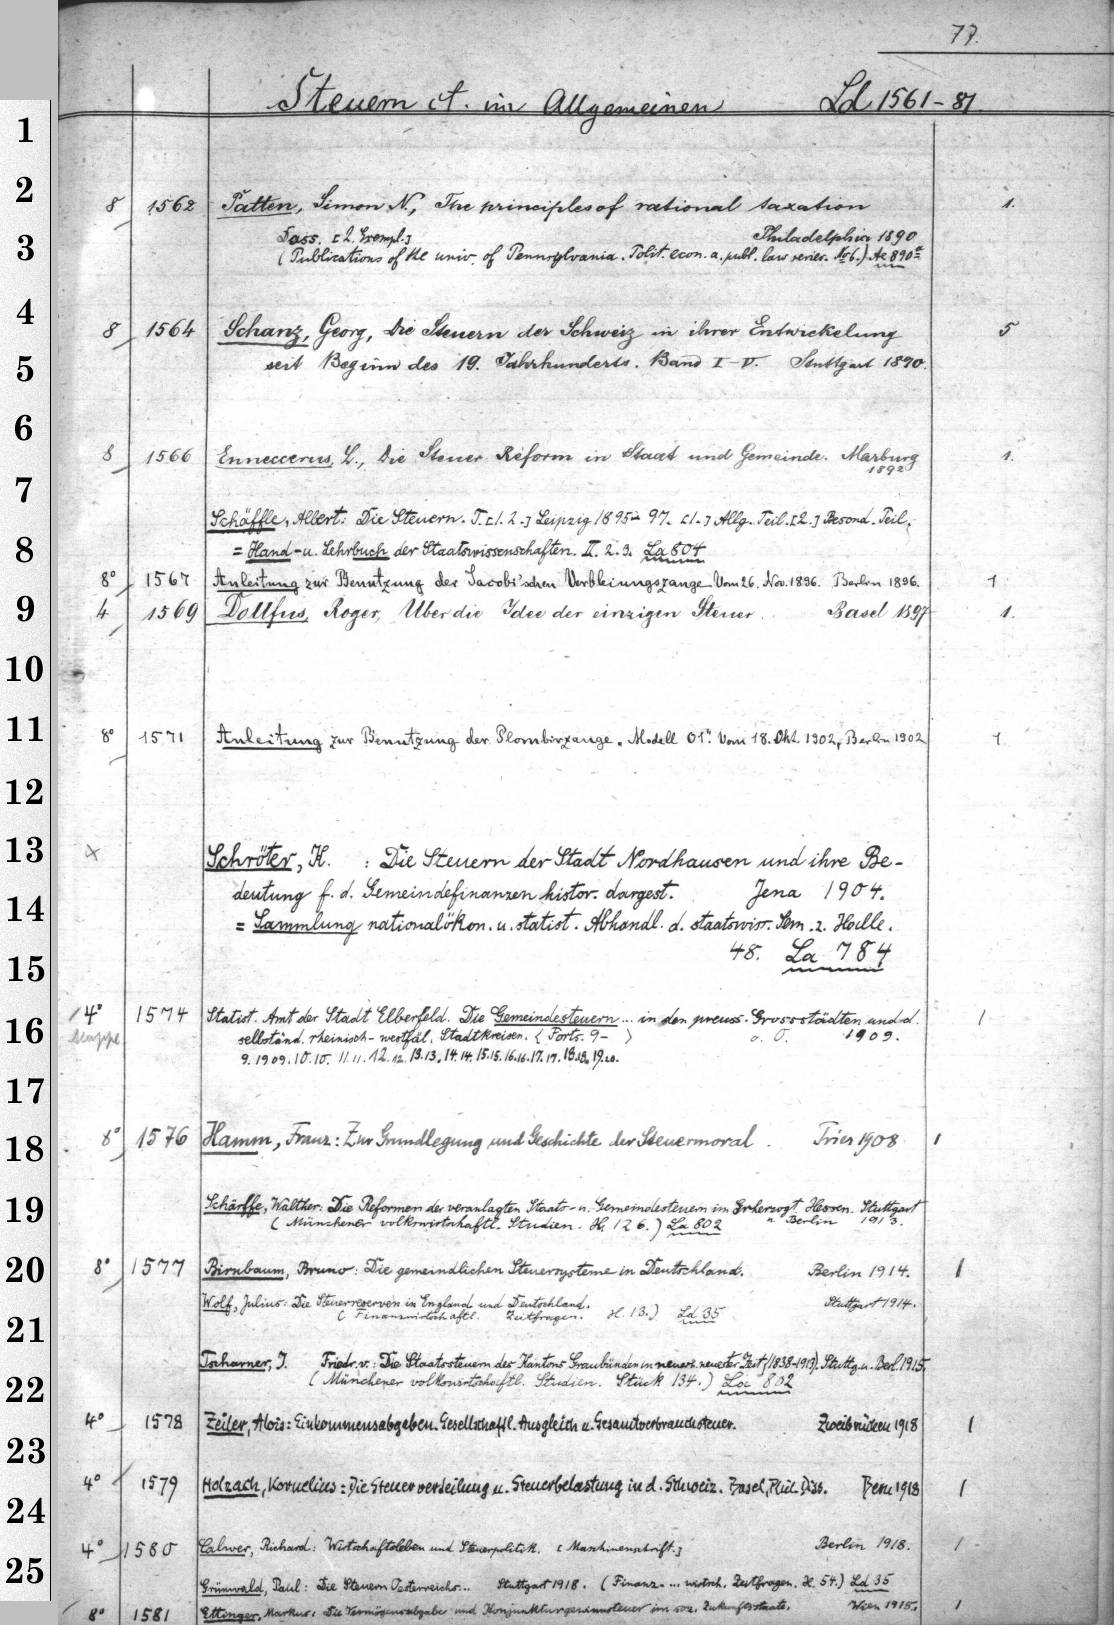 77.
Steuern ct. im Allgemeinen Ld 1561-81
1
2
8 1562 Patten, Simon N., The principles of rational taxation 1.
Dass. [2. Exempl.] Philadelphia 1890
3
(Publications of the univ. of Pennsylvania. Polit. econ. a. publ. law series. No 6.) Ae 890a
4
8 1564 Schanz, Georg, Die Steuern der Schweiz in ihrer Entwickelung 5
5
seit Beginn des 19. Jahrhunderts. Band I-V. Stuttgart 1890.
6
8 1566 Enneccerus, L., Die Steuer Reform in Staat und Gemeinde. Marburg 1.
1892
7
Schäffle, Albert: Die Steuern. T. [1. 2.] Leipzig 1895 - 97. [1.] Allg. Teil. [2.] Besond. Teil.
8
= Hand- u. Lehrbuch der Staatswissenschaften. II. 2. 3. La 804
8° 1567 Anleitung zur Benutzung der Jacobi'schen Verbleiungszange. Vom 26. Nov. 1896. Berlin 1896. 1
9
4 1569 Dollfus, Roger, Über die Idee der einzigen Steuer. Basel 1897 1.
10
11
8° 1571 Anleitung zur Benutzung der Plombirzange. Modell 01". Vom 18. Okt. 1902. Berlin 1902 1
12
13
x Schröter, K. : Die Steuern der Stadt Nordhausen und ihre Be-
14
deutung f. d. Gemeindefinanzen histor. dargest. Jena 1904.
= Sammlung nationalökon. u. statist. Abhandl. d. staatswiss. Sem. z. Halle.
15
48. La 784
4° 1574 Statist. Amt der Stadt Elberfeld. Die Gemeindesteuern ... in den preuss. Grossstädten und d. 1
16
selbständ. rheinisch-westfäl. Stadtkreisen. < Forts. 9- > o. O. 1909.
9. 1909. 10.10. 11.11. 12.12. 13.13. 14.14. 15.15. 16.16. 17.17. 18.18. 19.20.
17
18
8° 1576 Hamm, Franz: Zur Grundlegung und Geschichte der Steuermoral. Trier 1908 1
19
Schärffe, Walther: Die Reformen der veranlagten Staats- u. Gemeindesteuern im Grherzogt. Hessen. Stuttgart
(Münchener volkswirtschaftl. Studien. H. 126.) La 802 u. Berlin 1913.
20
8° 1577 Birnbaum, Bruno: Die gemeindlichen Steuersysteme in Deutschland. Berlin 1914. 1
Wolf, Julius: Die Steuerreserven in England und Deutschland. Stuttgart 1914.
(Finanzwirtschaftl. Zeitfragen. H. 13.) Ld 35
21
Tscharner, J. Friedr. v.: Die Staatssteuern des Kantons Graubünden in neuer u. neuester Zeit (1838-1913). Stuttg. u. Berl. 1915.
22
(Münchener volkswirtschaftl. Studien. Stück 134.) La 802
4° 1578 Zeiler, Alois: Einkommensabgaben. Gesellschaftl. Ausgleich u. Gesamtverbrauchsteuer. Zweibrücken 1918 1
23
4° 1579 Holzach, Kornelius: Die Steuerverteilung u. Steuerbelastung in d. Schweiz. Basel, Phil. Diss. Bern 1918 1
24
4° 1580 Calwer, Richard: Wirtschaftsleben und Steuerpolitik. [Maschinenschrift.] Berlin 1918. 1
25
Grünwald, Paul: Die Steuern Oesterreichs... Stuttgart 1918. (Finanz- ... wirtsch. Zeitfragen. H. 54.) Ld 35
8° 1581 Ettinger, Markus: Die Vermögensabgabe und Konjunkturgewinnsteuer im soz. Zukunftsstaate. Wien 1915. 1